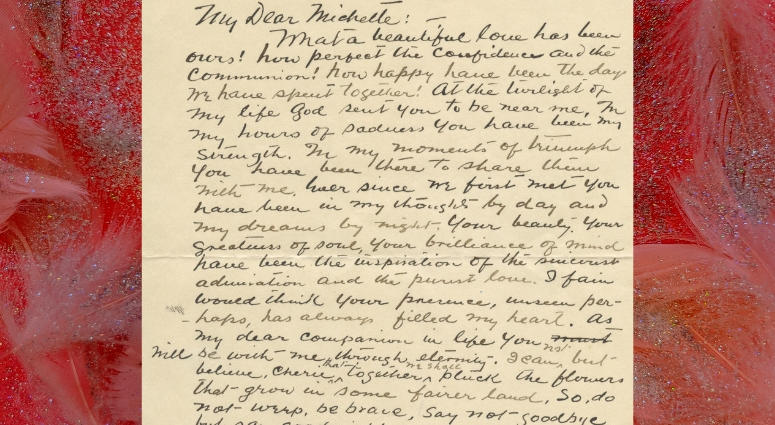 My Dear Michette:
What a beautiful love has been
ours! how perfect the confidence and the
communion! how happy have been the days
we have spent together! At the twilight of
my life God sent you to be near me, In
my hours of sadness you have been my
strength. In my moments of triumph
you have been there to share them
with me, Ever since we first met you
have been in my thoughts by day and
my dreams by night. Your beauty, your
greatness of soul, your brilliance of mind
have been the inspiration of the sincerest
admiration and the purest love. I fain
would think your presence, unseen per-
haps, has always filled my heart. As
my dear companion in life you must
will be with me through eternity. I can not but
believe, cherie, that together we shall pluck the flowers
that grow in some fairer land, So, do
not weep, be brave, Say not goodbye
but say